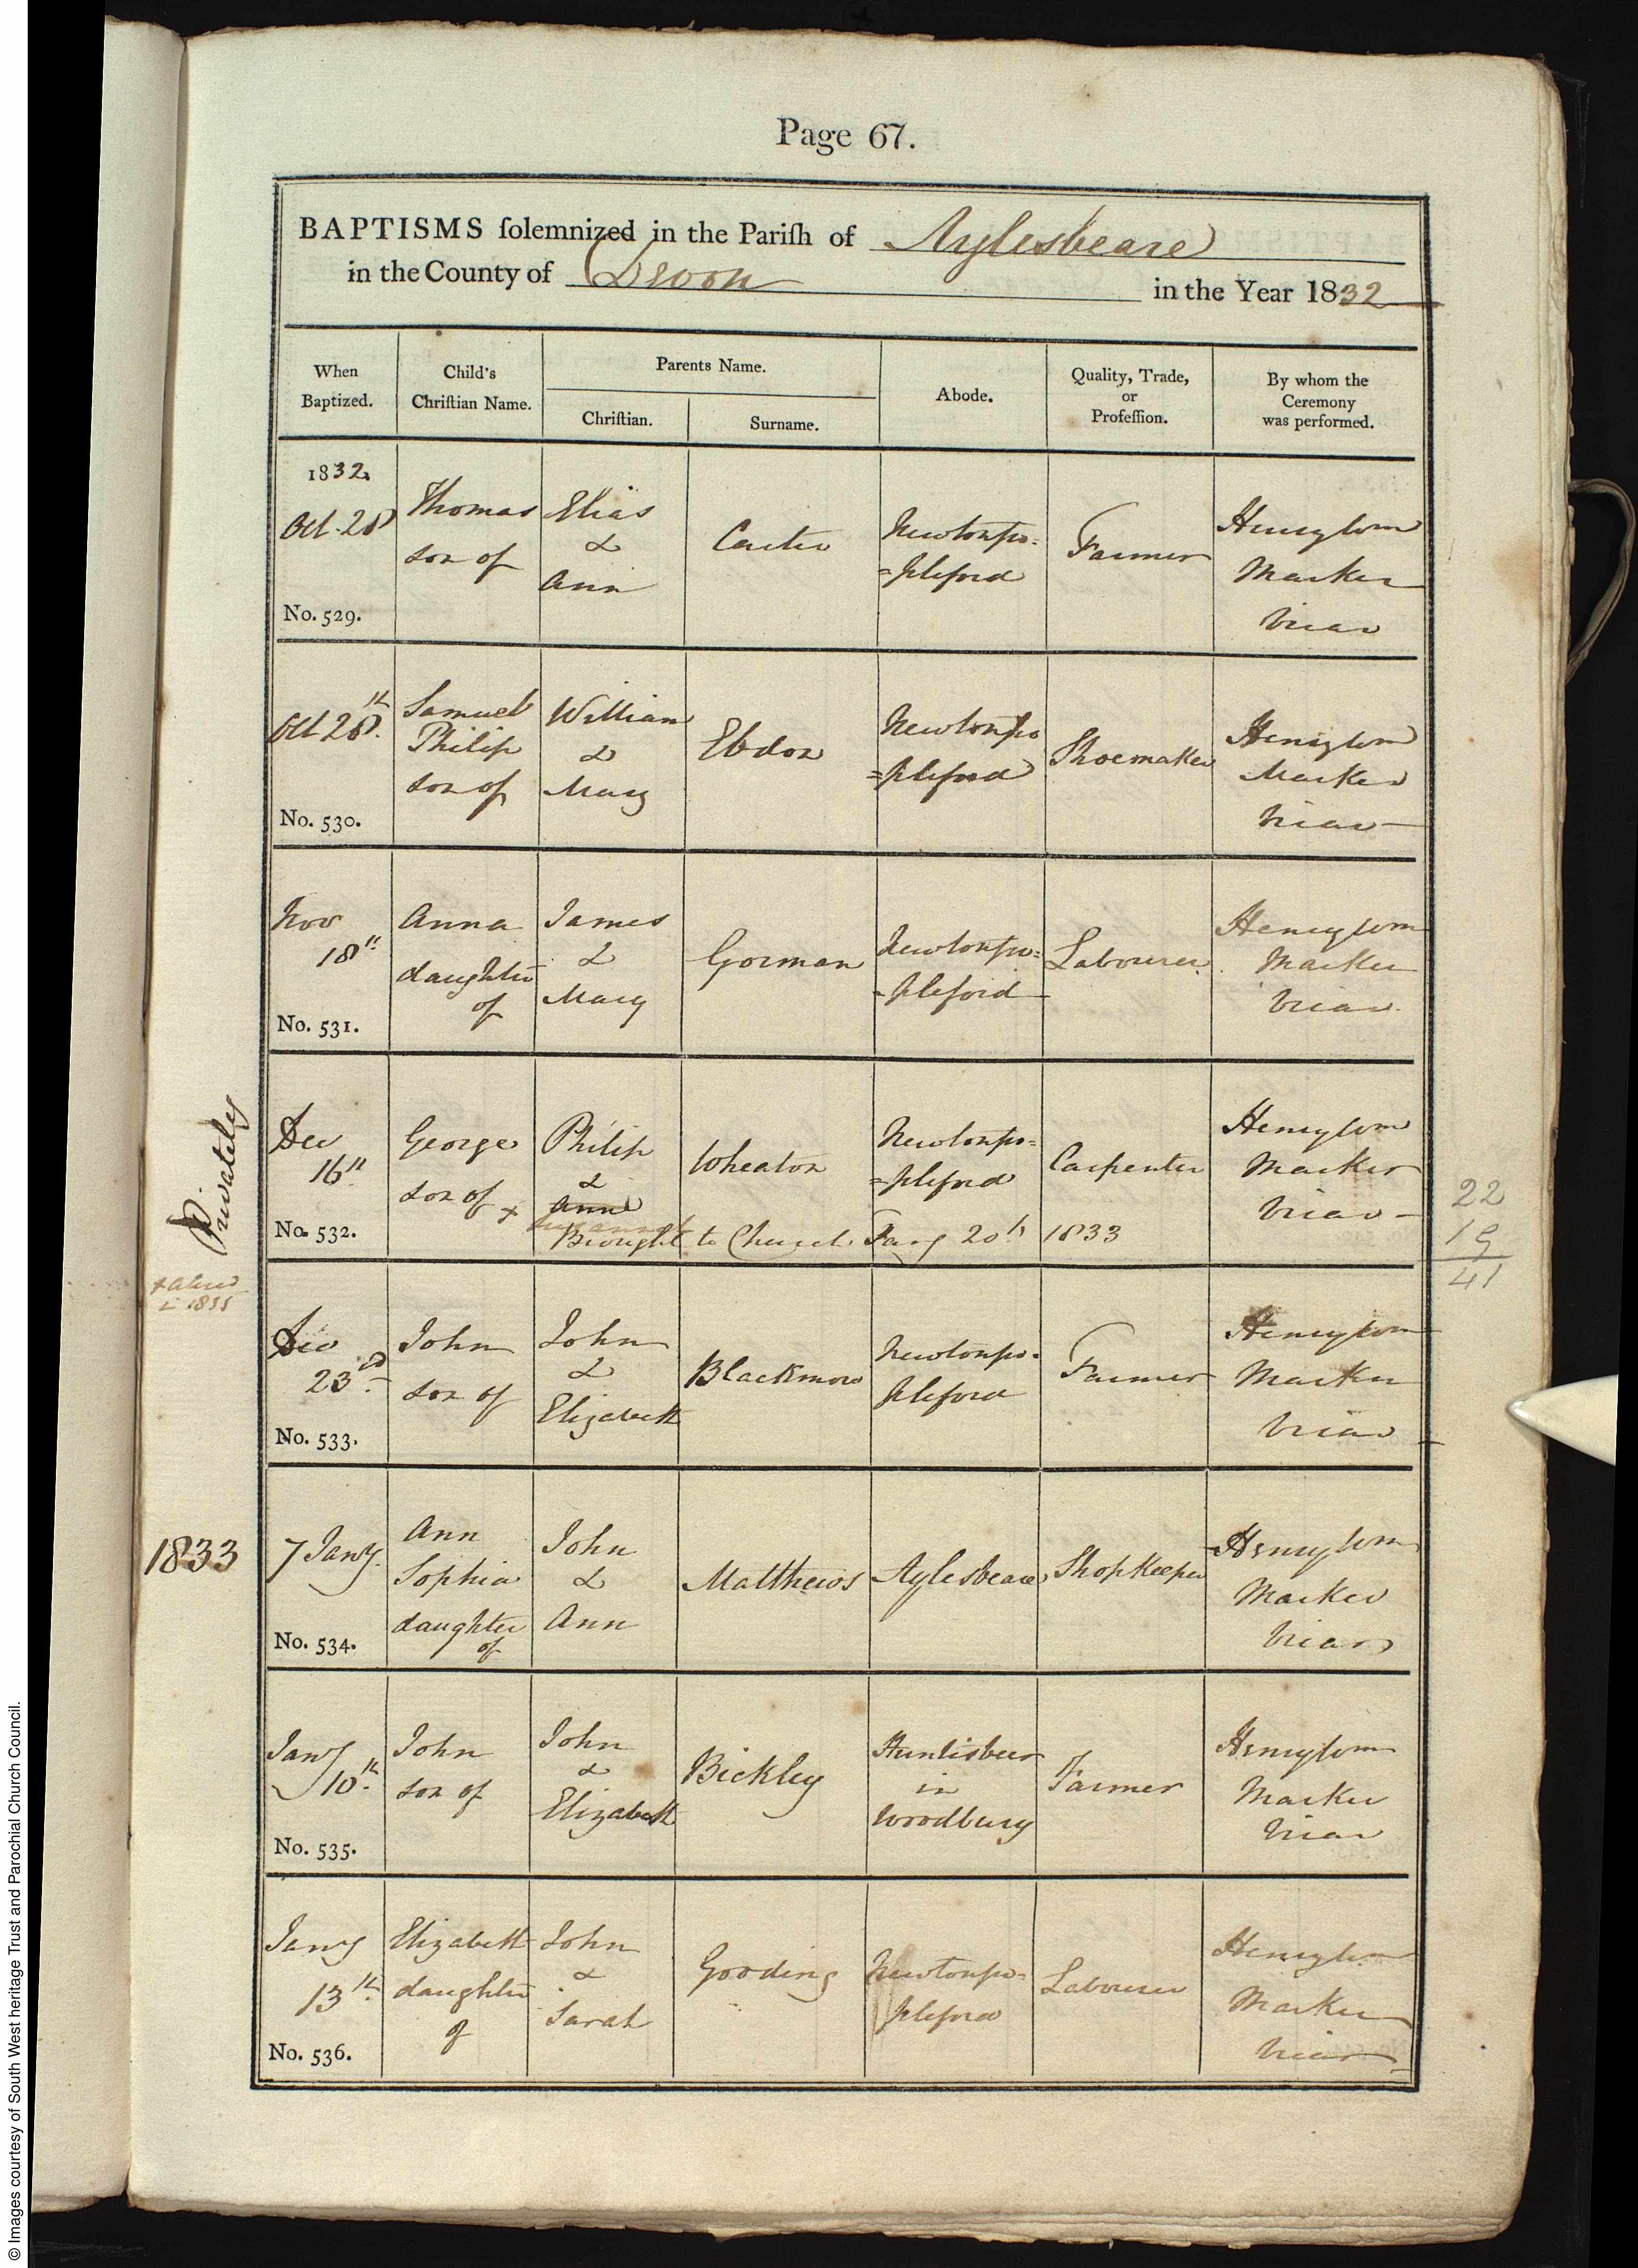 Page 67.
BAPTISMS ſolemnized in the Pariſh of Aylesbeare
in the County of Devon in the Year 1832
When Baptized.
Child's Chriſtian Name.
Parents Name.
Chriſtian.
Surname.
Abode.
Quality, Trade, or Profeſſion.
By whom the Ceremony was performed.
1832.
Oct. 28
No. 529.
Thomas
son of
Elias
&
Ann
Carter
Newtonpo=
=pleford
Farmer
Henry Wm
Marker
Vicar
Oct 28th.
No. 530.
Samuel
Philip
son of
William
&
Mary
Ebdon
Newtonpo
=pleford
Shoemaker
Henry Wm
Marker
Vicar
Nov
18th
No. 531.
Anna
daughter
of
James
&
Mary
Gorman
Newtonpo=
=pleford
Labourer.
Henry Wm
Marker
Vicar.
Privately
Dec
16th
No. 532.
George
son of x
Philip
&
Ann
Susannah
Wheaton
Newtonpo=
=pleford
Carpenter
Henry Wm
Marker
Vicar
Brought to Church Jany 20th 1833
22
19
41
x altered
in 1835
Dec
23rd.
No. 533.
John
son of
John
&
Elizabeth
Blackmore
Newtonpo=
pleford
Farmer
Henry Wm
Marker
Vicar
1833
7 Jany.
No. 534.
Ann
Sophia
daughter
of
John
&
Ann
Matthews
Aylesbeare
Shopkeeper
Henry Wm
Marker
Vicar
Jany
10th.
No. 535.
John
son of
John
&
Elizabeth
Bickley
Huntisbeer
in
Woodbury
Farmer
Henry Wm
Marker
Vicar
Jany
13th.
No. 536.
Elizabeth
daughter
of
John
&
Sarah
Gooding
Newtonpo=
pleford
Labourer
Henry Wm
Marker
Vicar
© Images courtesy of South West heritage Trust and Parochial Church Council.